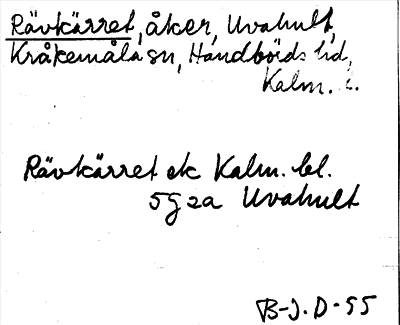 Rävkärret, åker, Uvahult,
Kråkemåla sn, Handbörds hd,
Kalm. l.
Rävkärret ek Kalm. bl.
5 G 2a Uvahult
B-J. D-55